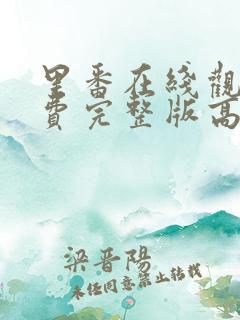 里番在线觀
費完整版高
梁晋陽
未经同意禁止转载